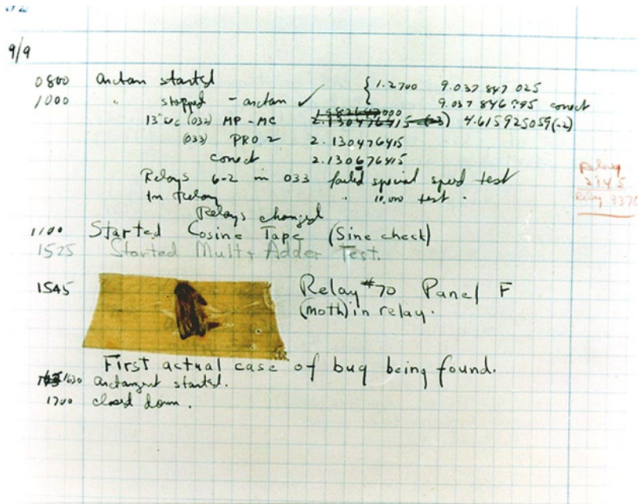 9/9
0800 Antan started
1000 " stopped - antan ✓ { 1.2700 9.037 847 025
9.037 846 995 conect
13"uc (032) MP - MC 2.130476415 (-3) 4.615925059(-2)
(033) PRO 2 2.130476415
conect 2.130676415
Relays 6-2 in 033 failed special speed test
In Relay " 10,000 test .
Relays changed
1100 Started Cosine Tape (Sine check)
1525 Started Mult + Adder Test.
1545 Relay #70 Panel F
(moth) in relay.
First actual case of bug being found.
1630 antangent started.
1700 closed down.
Relay
2145
Relay 3370